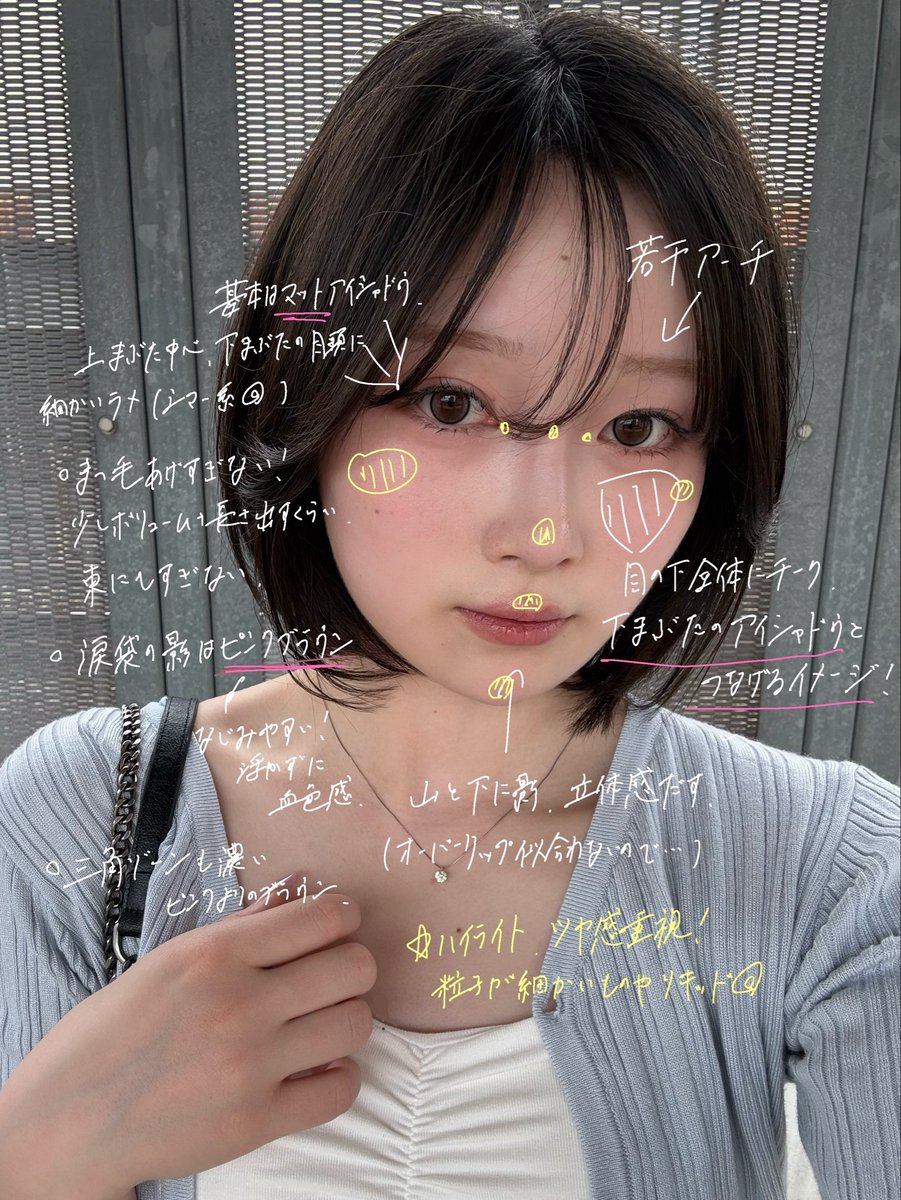 基本はマットアイシャドウ.
上まぶた中心、下まぶたの目頭に
細かいラメ(シマー系◎)
○まつ毛あげすぎない!
少しボリュームも長さ出すくらい.
束にもしすぎない.
○涙袋の影はピンクブラウン
なじみやすい!
浮かずに
血色感.
○三角ゾーンも濃い
ピンクよりのブラウン
若干アーチ
目の下全体にチーク.
下まぶたのアイシャドウと
つなげるイメージ!
山と下に影.立体感だす.
(オーバーリップ似合わないので…)
☆ハイライト、ツヤ感重視!
粒子が細かいものやリキッド◎